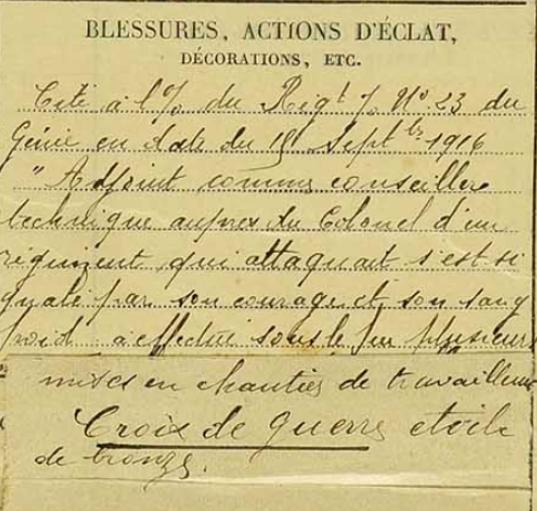 BLESSURES, ACTIONS D'ÉCLAT,
DÉCORATIONS, ETC.
Cité à l'% du Rigt % No 23 du
Génie en date du 18 Septbr 1916
"Adjoint comme conseillere
technique aupres du Colonel d'un
régiment qui attaquait s'est si
gnalé par son courage et son sang
froid a effectué sous le feu plusieurs
mises en chantier de travailleurs
Croix de guerre étoile
de bronze.